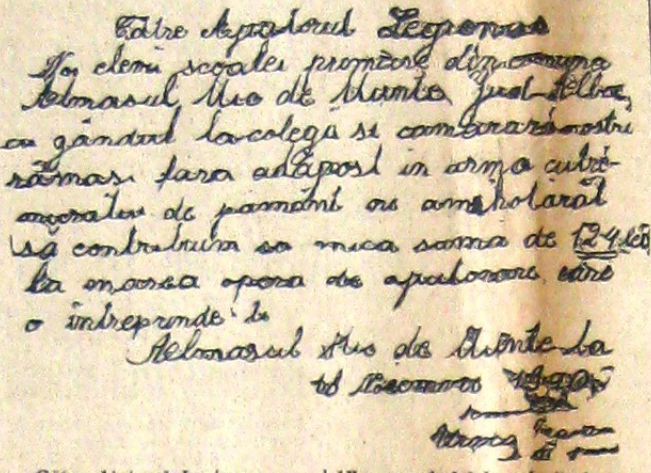 Către Ajutorul Legionar
Noi elevi scoalei primare din comuna
Almasul Mic de Munte Jud. Alba,
cu gândul la colegii si camarazi nostri
rămasi fara adăpost in urma cutre-
murului de pamânt ne am hotărat
să contribuim cu mica suma de 124 lei
la marea opera de ajutorare care
o intreprinde
Almasul Mic de Munte la